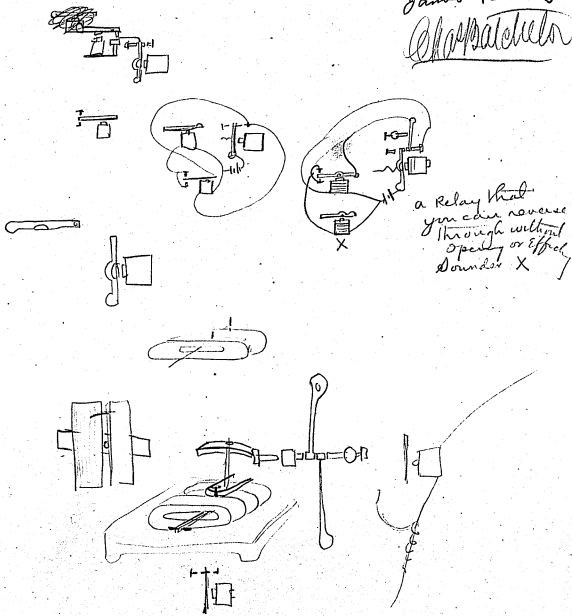 Chas Batchelor
a Relay that
you can reverse
through without
opening or Effectg
Sounder X
X